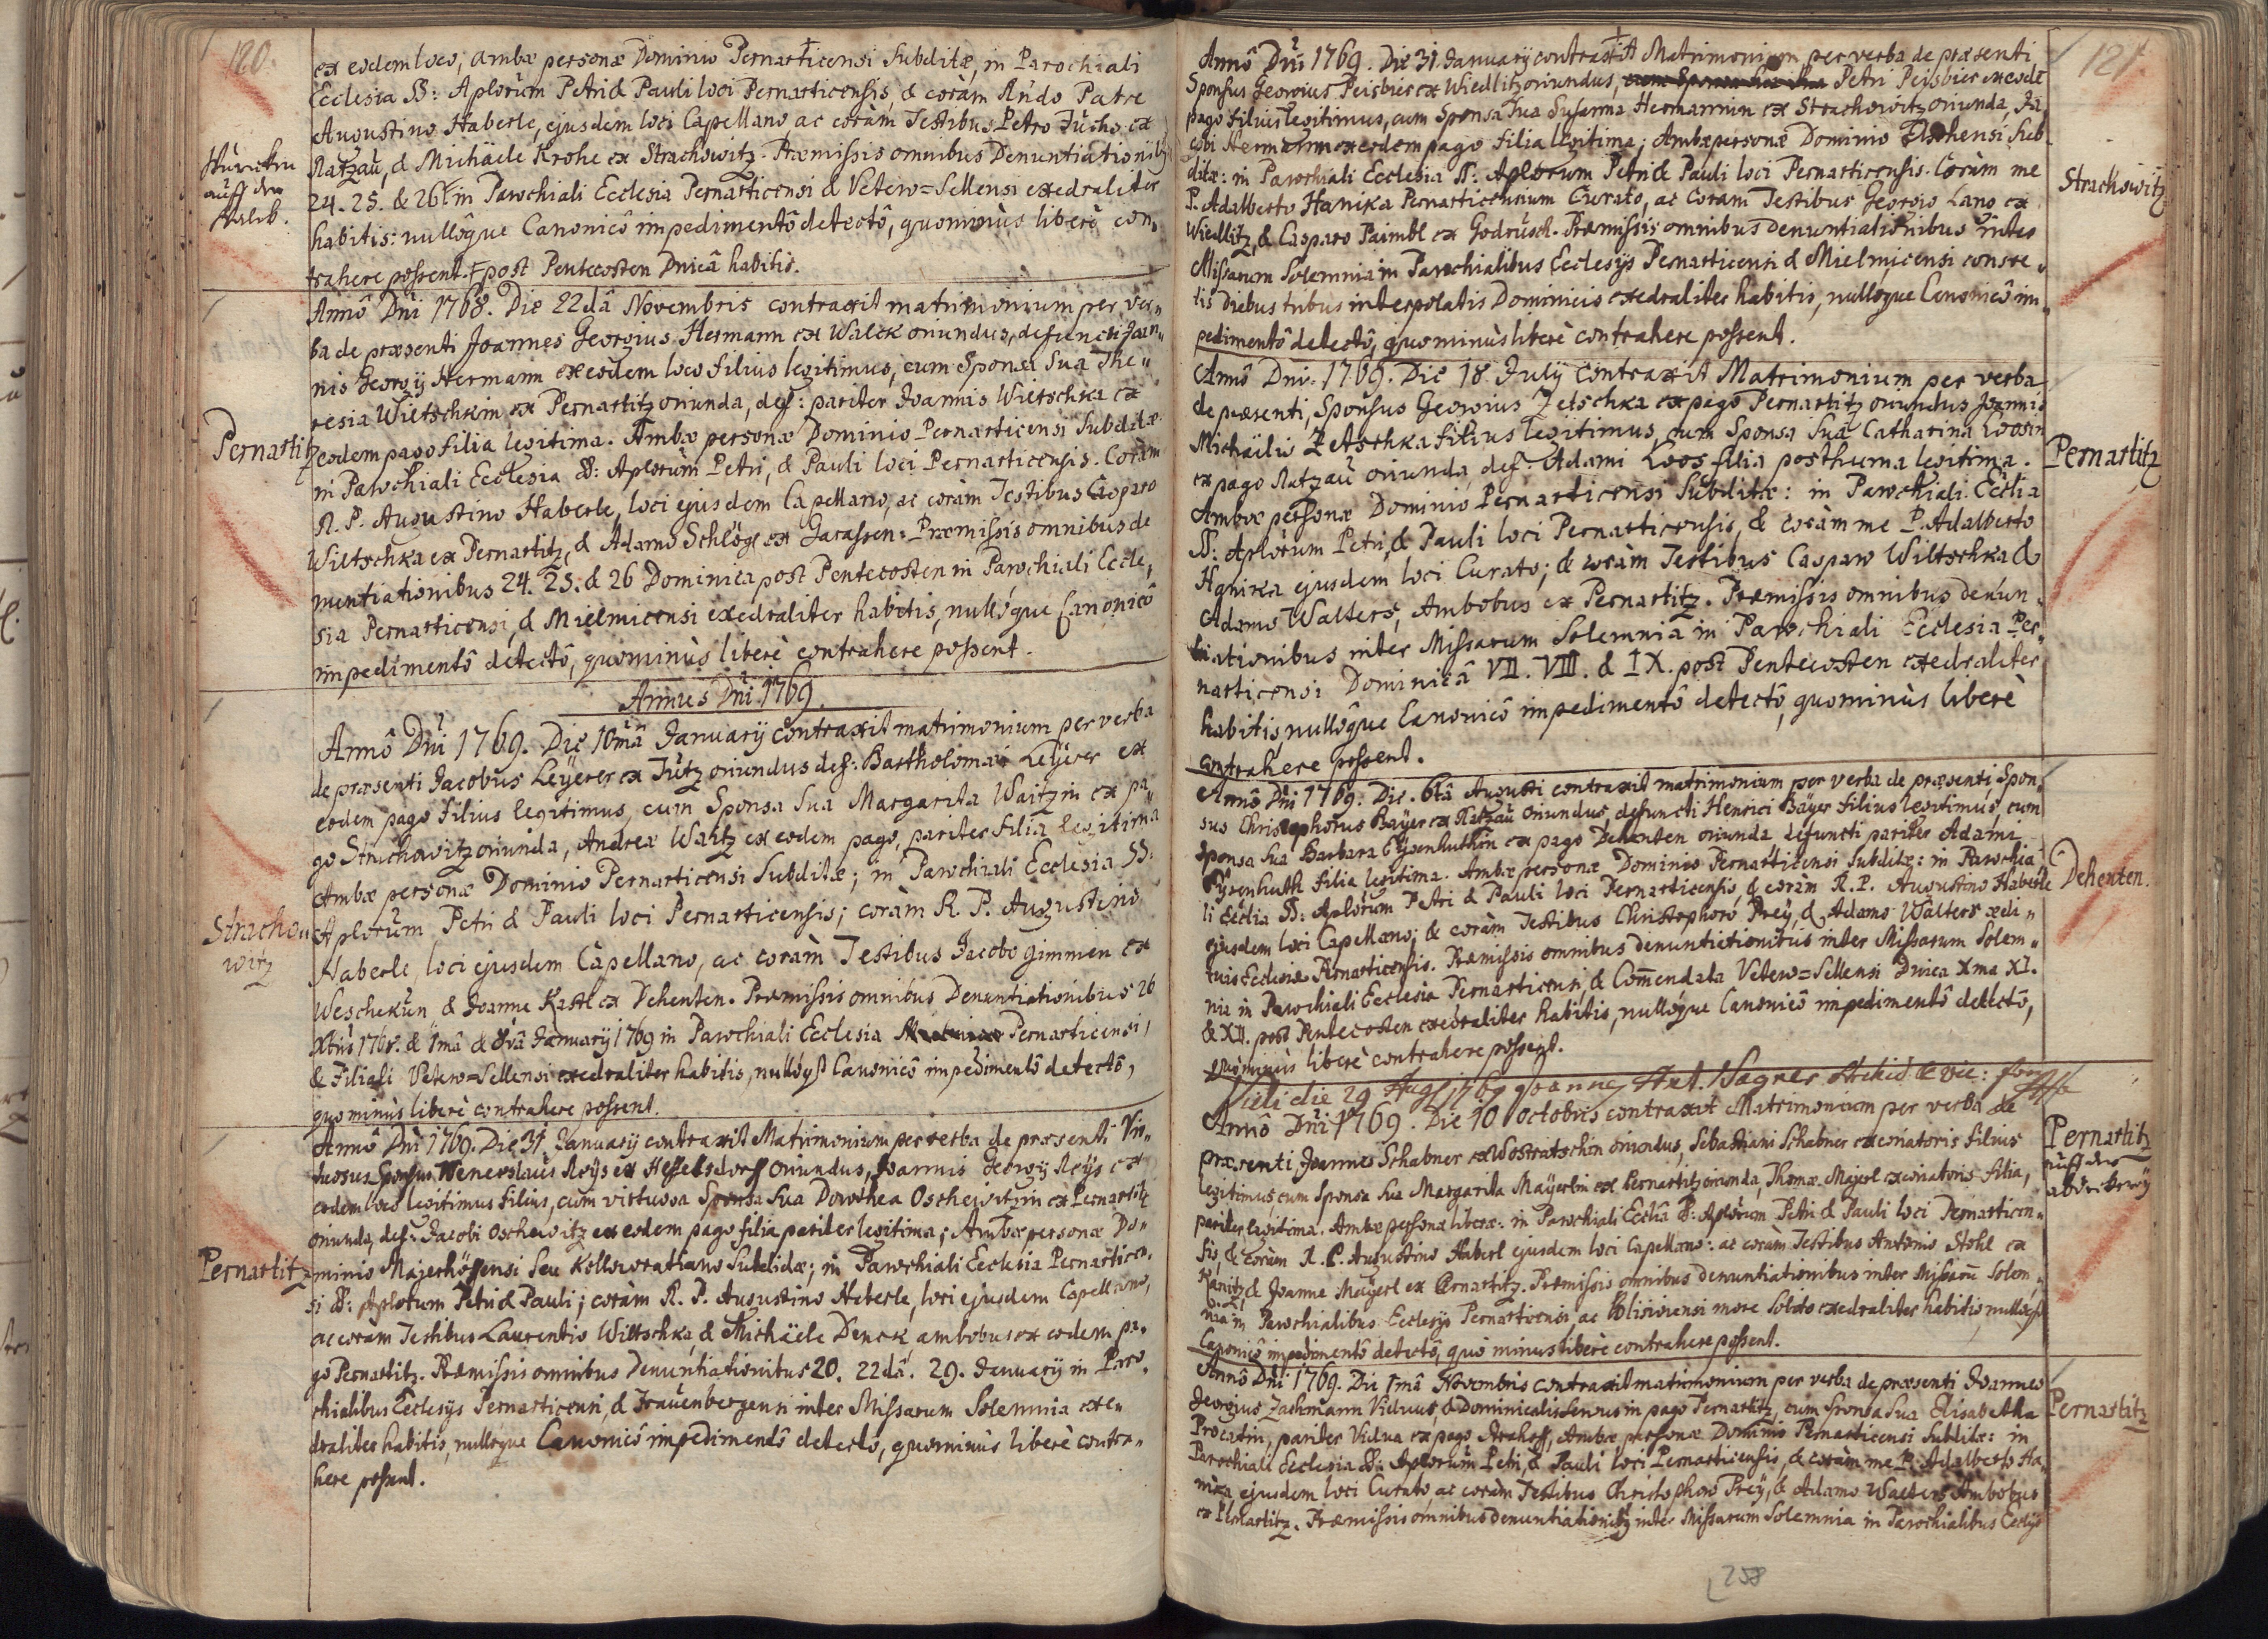 120.
ex eodem loco, ambæ personæ Dominio Pernarticensi Subditæ, in Parochiali
Ecclesia SS: Aplorum Petri & Pauli loci Pernarticensis, & coràm Rndo Patre
Augustino Haberle, ejusdem loci Capellano, ac coràm Testibus Petro Fuchs ex
Ratzaü, & Michäele Krohe ex Strachowitz. Præmissis omnibus Denuntiationibq
24. 25. & 26 in Parochiali Ecclesia Pernarticensi & Vetero=Sellensi exedraliter
habitis: nullôque Canonicô impedimentô detectô, quominùs liberè con„
trahere possent. post Pentecosten Dnicâ habitis.
auff der
Pernartitz
Annô Dni 1768. Die 22dâ Novembris contraxit matrimonium per ver„
ba de præsenti Joannes Georgius Hermann ex Walck oriundus, defuncti Joan„
nis Georgÿ Hermann ex eodem loco filius legitimus, cum Sponsa Sua The„
resia Wietschkin ex Pernartitz oriunda, def: pariter Joannis Wietschka ex
eodem pago filia legitima. Ambæ personæ Dominio Pernarticensi Subditæ
in Parochiali Ecclesia SS: Aplorùm Petri, & Pauli loci Pernarticensis. Coràm
R. P. Augustino Haberle, loci ejusdem Capellano, ac coràm Testibus Casparo
Wiltschka ex Pernartitz, & Adamo Schlögl ex Garassen: Præmissis omnibus de
nuntiationibus 24. 25. & 26 Dominica post Pentecosten in Parochiali Eccle„
sia Pernarticensi, & Mielmicensi exedraliter habitis, nullóque Canonicô
impedimentô detectô, quominùs liberè contrahere possent.
Annus Dni 1769.
Stracho„
witz
Annô Dni 1769. Die 10mâ Januarÿ contraxit matrimonium per verba
de præsenti Jacobus Leÿerer ex Tütz oriundus def: Bartholomæi Leÿrer ex
eodem pago filius legitimus, cum Sponsa Sua Margarita Waitzin ex pa„
go Strachowitz oriunda, Andreæ Waitz ex eodem pago, pariter filia legitima
Ambæ personæ Dominio Pernarticensi Subditæ; in Parochiali Ecclesia SS:
Aplorum Petri & Pauli loci Pernarticensis; coràm R. P. Augustino
Haberle, loci ejusdem Capellano, ac coràm Testibus Jacobo Gimmen ex
Weschekun & Joanne Kastl ex Dehenten. Præmissis omnibus Denuntiationibus 26
Xbris 1768. & 1mâ & 8vâ Januarÿ 1769 in Parochiali Ecclesia Pernarticensi,
& Filiali Vetero=Sellensi exedraliter habitis, nullóq3 Canonicô impedimentô detectô,
quominùs liberè contrahere possent.
Pernartitz
Annô Dni 1769. Die 31. Januarÿ contraxit Matrimonium per verba de præsenti Vir„
tuosus Sponsus Wenceslaus Reÿs ex Hesselsdorff oriundus, Joannis Georgÿ Reÿs ex
eodem loco legitimus filius, cum virtuosa Sponsa Sua Dorothea Oschewitzin ex Pernartitz
oriunda, def: Jacobi Oschewitz ex eodem pago filia pariter legitima; Ambæ personæ Do„
minio Majerhöffensi Seu Kollowrathiano Subditæ; in Parochiali Ecclesia Pernarticen„
si SS: Aplorum Petri & Pauli; coràm R. P. Augustino Heberle, loci ejusdem Capellano,
ac coram Testibus Laurentio Wiltschka, & Michäele Denck, ambobus ex eodem pa„
go Pernartitz. Præmissis omnibus Denuntiationibus 20. 22dâ. 29. Januarÿ in Paro„
chialibus Ecclesÿs Pernarticensi, & Frauenbergensi inter Missarum Solemnia exe„
draliter habitis, nulloque Canonicô impedimentô detectô, quominùs liberè contra„
here possent.
121
Annô Dni 1769. Die 31. Januarÿ contraxit Matrimonium per verba de præsenti
Sponsus Georgius Peisbier ex Wiedlitz oriundus, Petri Peisbier ex eodē
pago filius legitimus, cum Sponsa Sua Susanna Hermannin ex Strachowitz oriunda, Ja
cobi Hermann ex eodem pago filia legitima; Ambæ personæ Dominio Sub
ditæ: in Parochiali Ecclesia SS: Aplorum Petri & Pauli loci Pernarticensis. Coràm me
P. Adalberto Hanika Pernarticensium Curato, ac Coram Testibus Georgio Lang ex
Wiedlitz, & Casparo Paimbl ex Godrusch. Præmissis omnibus Denuntiationibus inter
Missarum Solemnia in Parochialibus Ecclesÿs Pernarticensi & Mielmicensi consve„
tis diebus tribus interpolatis Dominicis exedraliter habitis, nullóque Canonicô im„
pedimentô detectô, quominùs liberè contrahere possent.
Strachowitz
Annô Dni. 1769. Die 18. Julÿ Contraxit Matrimonium per verba
de præsenti, Sponsus Georgius Zetschka ex pago Pernartitz oriundus Joannis
Michäelis Zetschka filius legitimus, cum Sponsa Sua Catharina Loosin
ex pago Ratzaü oriunda, def: Adami Loos filia posthuma legitima.
Ambæ personæ Dominio Pernarticensi Subditæ: in Parochiali Ecclia
SS: Aplorum Petri, & Pauli loci Pernarticensis, & coràm me P. Adalberto
Hanika ejusdem loci Curato; & coràm Testibus Casparo Wiltschka &
Adamo Walters, Ambobus ex Pernartitz. Præmissis omnibus denun„
tiationibus inter Missarum Solemnia in Parochiali Ecclesia Per„
narticensi Dominicâ VII. VIII. & IX. post Pentecosten exedraliter
habitis, nullôque Canonicô impedimentô detectô, quominùs liberè
contrahere possent.
Pernartitz
Annô Dni 1769. Die. 6tâ Augusti contraxit matrimonium per verba de præsenti, Spon„
sus Christophorus Baÿer ex Ratzaü oriundus, defuncti Henrici Baÿer filius legitimus, cum
Sponsa Sua Barbara Eÿsenhuthin ex pago Dehenten oriunda defuncti pariter Adami
Eÿsenhuth filia legitima. Ambæ personæ Dominio Pernarticensi Subditæ: in Parochia
li Ecclia SS: Aplorum Petri & Pauli loci Pernarticensis, & coràm R. P. Augustino Haberle
ejusdem loci Capellano; & coràm Testibus Christophoro Preÿ, & Adamo Walters ædi„
tuis Ecclesiæ Pernarticensis. Præmissis omnibus denuntiationibus inter Missarum Solem„
nia in Parochiali Ecclesia Pernarticensi, & Comendata Vetero=Sellensi Dnica Xma XI.
& XII. post Pentecosten exedraliter habitis, nullóque Canonicô impedimentô detectô,
quominùs liberè contrahere possent.
Dehenten.
Vidi die 29 Aug 1769 Joannes Ant. Wagner Archid & vic: for
Annô Dni 1769. Die 10 Octobris contraxit Matrimonium per verba de
præsenti Joannes Schabner ex Wostratschin oriundus, Sebastiani Schabner excoriatoris filius
legitimus, cum Sponsa Sua Margarita Maÿerlin ex Pernartitz oriunda, Thomæ Majerl excoriatoris filia,
pariter legitima. Ambæ personæ liberæ: in Parochiali Ecclia SS: Aplorum Petri & Pauli loci Pernarticen„
sis, & coràm R. P. Augustino Haberl ejusdem loci Capellano: ac coram Testibus Antonio Stohl ex
Kanitz, & Joanne Meÿerl ex Pernartitz. Præmissis omnibus denuntiationibus inter Missarū Solem„
nia in Parochialibus Ecclesÿs Pernarticensi, ac more Solito exedraliter habitis, nullóq3
Canonicô impedimentô detectô, quo minus liberè contrahere possent.
Pernartitz
auff der
Annô Dni 1769. Die 1mâ Novembris contraxit matrimonium per verba de præsenti Joannes
Georgius Zachmann Viduus, & Dominicalis Servus in pago Pernartitz, cum Sponsa Sua Elisabetha
Procatin, pariter Vidua ex pago Strahoff, Ambæ personæ Dominio Pernarticensi Subditæ: in
Parochiali Ecclesia SS: Aplorum Petri, & Pauli loci Pernarticensis, & coràm me P. Adalberto Ha„
nika ejusdem loci Curato, ac coràm Testibus Christophoro Preÿ, & Adamo Walters Ambobus
ex Pernartitz. Præmissis omnibus denuntiationibq inter Missarum Solemnia in Parochialibus Ecclÿs
Pernartitz
258